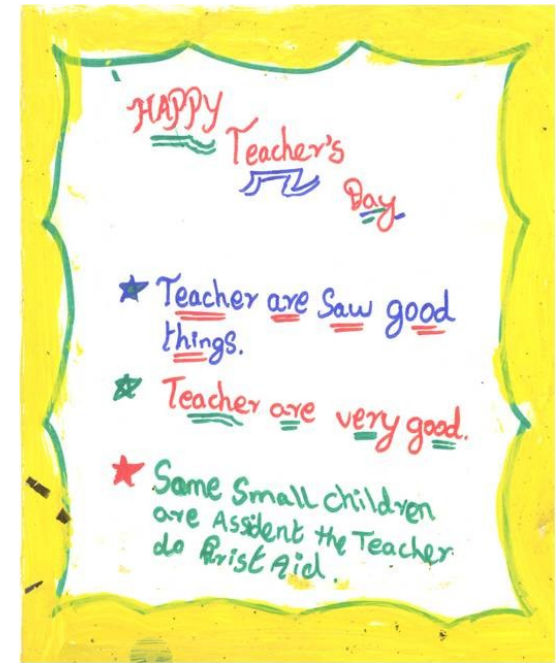 HAPPY
Teacher's
Day
Teacher are Saw good
things.
Teacher are very good.
Some Small children
are Assident the Teacher
do Frist Aid.